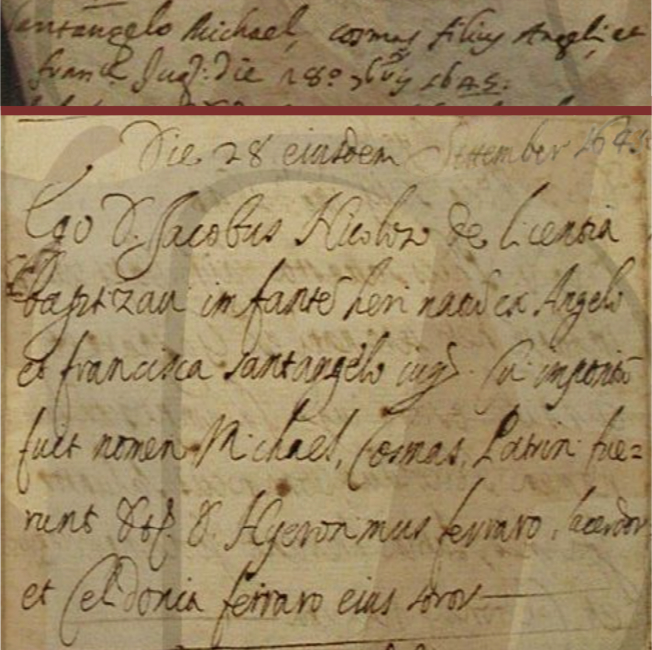 santangelo Michael, cosmas filius Angeli, et
franc. Jug: die 28º 7bris 1645.
Die 28 eiusdem Settember 1645
Ego D. Jacobus Nicoloso de licentia
baptizavi infante heri natu ex Angelo
et francisca santangelo iug. Cui impositu
fuit nomen Michael, Cosmas, Patrin: fue=
runt D. Hyeronimus ferraro, sacerdos
et Celidonia ferraro eius soror